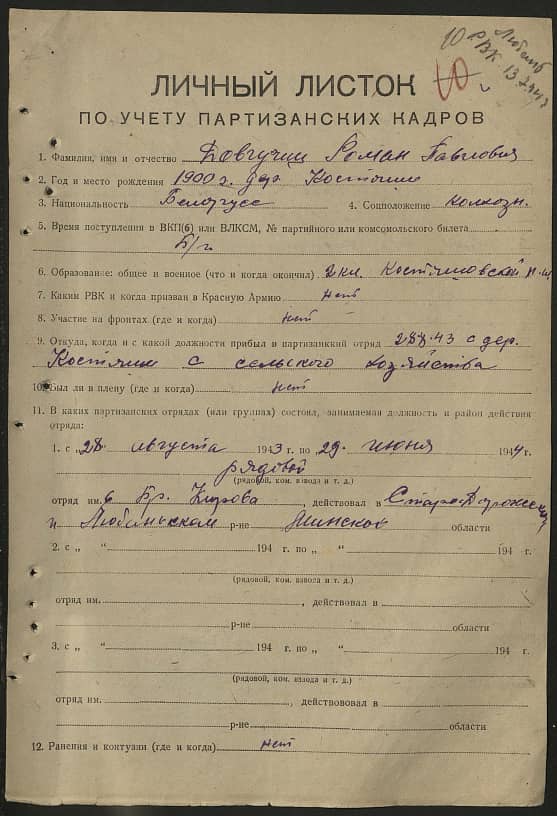 10
РВК
10
ЛИЧНЫЙ ЛИСТОК
ПО УЧЕТУ ПАРТИЗАНСКИХ КАДРОВ
1. Фамилия, имя и отчество Довгучиц Роман Павлович
2. Год и место рождения 1900 г. дер. Костяши
3. Национальность Белорусс 4. Соцположение колхозн.
5. Время поступления в ВКП(б) или ВЛКСМ, № партийного или комсомольского билета
Б/п
6. Образование: общее и военное (что и когда окончил) 2 кл. Костяшовской н.ш.
7. Каким РВК и когда призван в Красную Армию нет
8. Участие на фронтах (где и когда) нет
9. Откуда, когда и с какой должности прибыл в партизанский отряд 28.8.43 с дер.
Костяши с сельского хозяйства
10. Был ли в плену (где и когда) нет
11. В каких партизанских отрядах (или группах) состоял, занимаемая должность и район действия
отряда:
1. с „28 августа 1943 г. по „29 июня 1944 г.
рядовой
(рядовой, ком. взвода и т. д.)
отряд им. 6 Бр. Кирова, действовал в Старо-Дорожском
и Любаньском р-не Минской области
2. с „ “ 194 г. по „ “ 194 г.
(рядовой, ком. взвода и т. д.)
отряд им. , действовал в
р-не области
3. с „ “ 194 г. по „ “ 194 г.
(рядовой, ком. взвода и т. д.)
отряд им. , действововал в
р-не области
12. Ранения и контузии (где и когда) нет